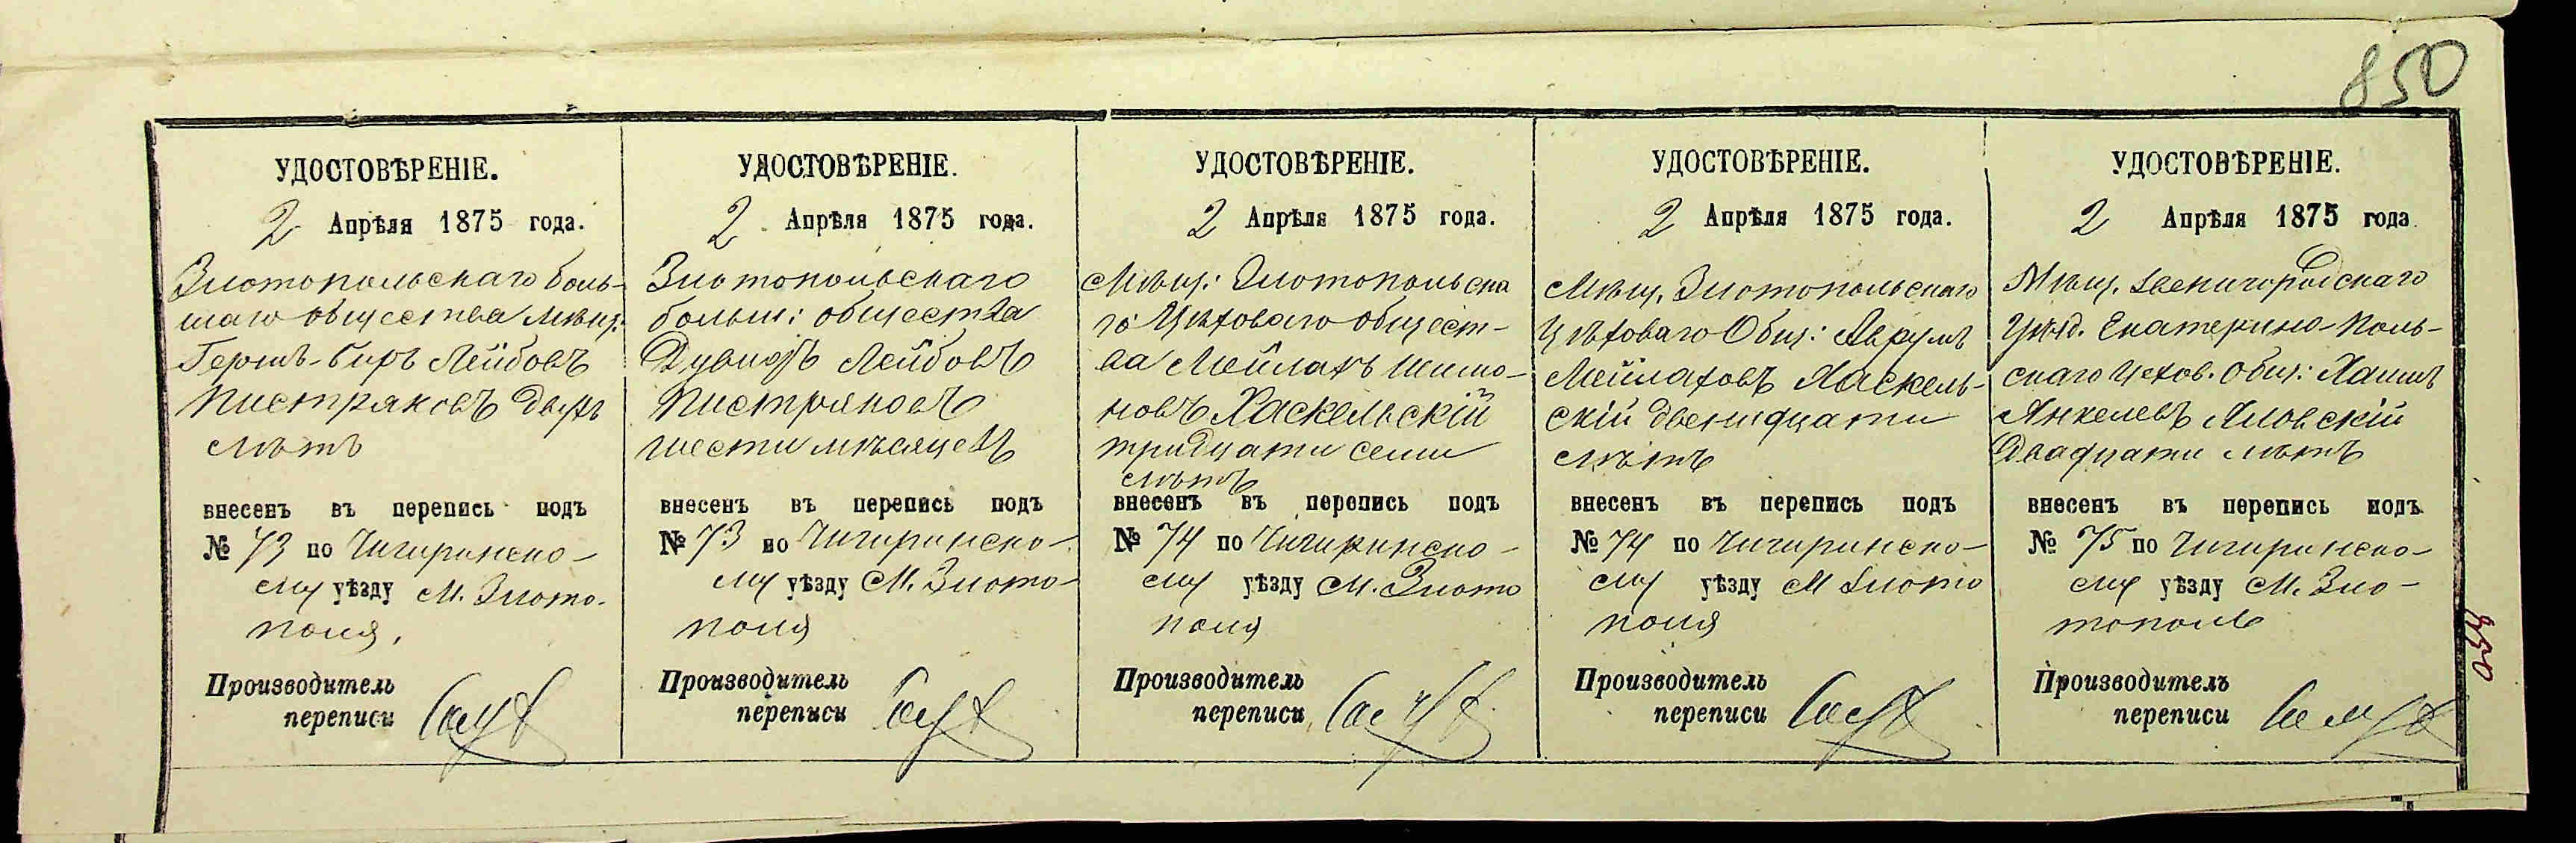 850
УДОСТОВѢРЕНІЕ.
2 Апрѣля 1875 года.
Златопольскаго боль-
шаго общества мѣщ:
Герш-Беръ Лейбовъ
Пистряковъ двухъ
лѣтъ
внесенъ въ перепись подъ
№ 73 по Чигиринско-
му уѣзду М. Злато-
поля.
Производитель
переписи
УДОСТОВѢРЕНІЕ.
2 Апрѣля 1875 года.
Златопольскаго
больш: общества
Лейбовъ
Пистряковъ
шести мѣсяцевъ
внесенъ въ перепись подъ
№ 73 по Чигиринско-
му уѣзду М. Злато-
поля
Производитель
переписи
УДОСТОВѢРЕНІЕ.
2 Апрѣля 1875 года.
Мѣщ: Златопольска
го Цѣховаго общест-
ва Мейлахъ Шимо-
новъ Хаскельскій
тридцати семи
лѣтъ
внесенъ въ перепись подъ
№ 74 по Чигиринско-
му уѣзду М. Злато
поля
Производитель
переписи
УДОСТОВѢРЕНІЕ.
2 Апрѣля 1875 года.
Мѣщ. Златопольскаго
Цѣховаго Общ: Аврумъ
Мейлаховъ Хаскель-
скій двенадцати
лѣтъ
внесенъ въ перепись подъ
№ 74 по Чигиринско-
му уѣзду М Злато
поля
Производитель
переписи
УДОСТОВѢРЕНІЕ.
2 Апрѣля 1875 года
Мѣщ. Звенигородскаго
Уѣзд. Екатерино-Поль-
скаго Цехов. Общ: Хаимъ
Янкелевъ Яловскій
Двадцати лѣтъ
внесенъ въ перепись подъ
№ 75 по Чигиринско-
му уѣзду М. Зла-
тополь
Производитель
переписи